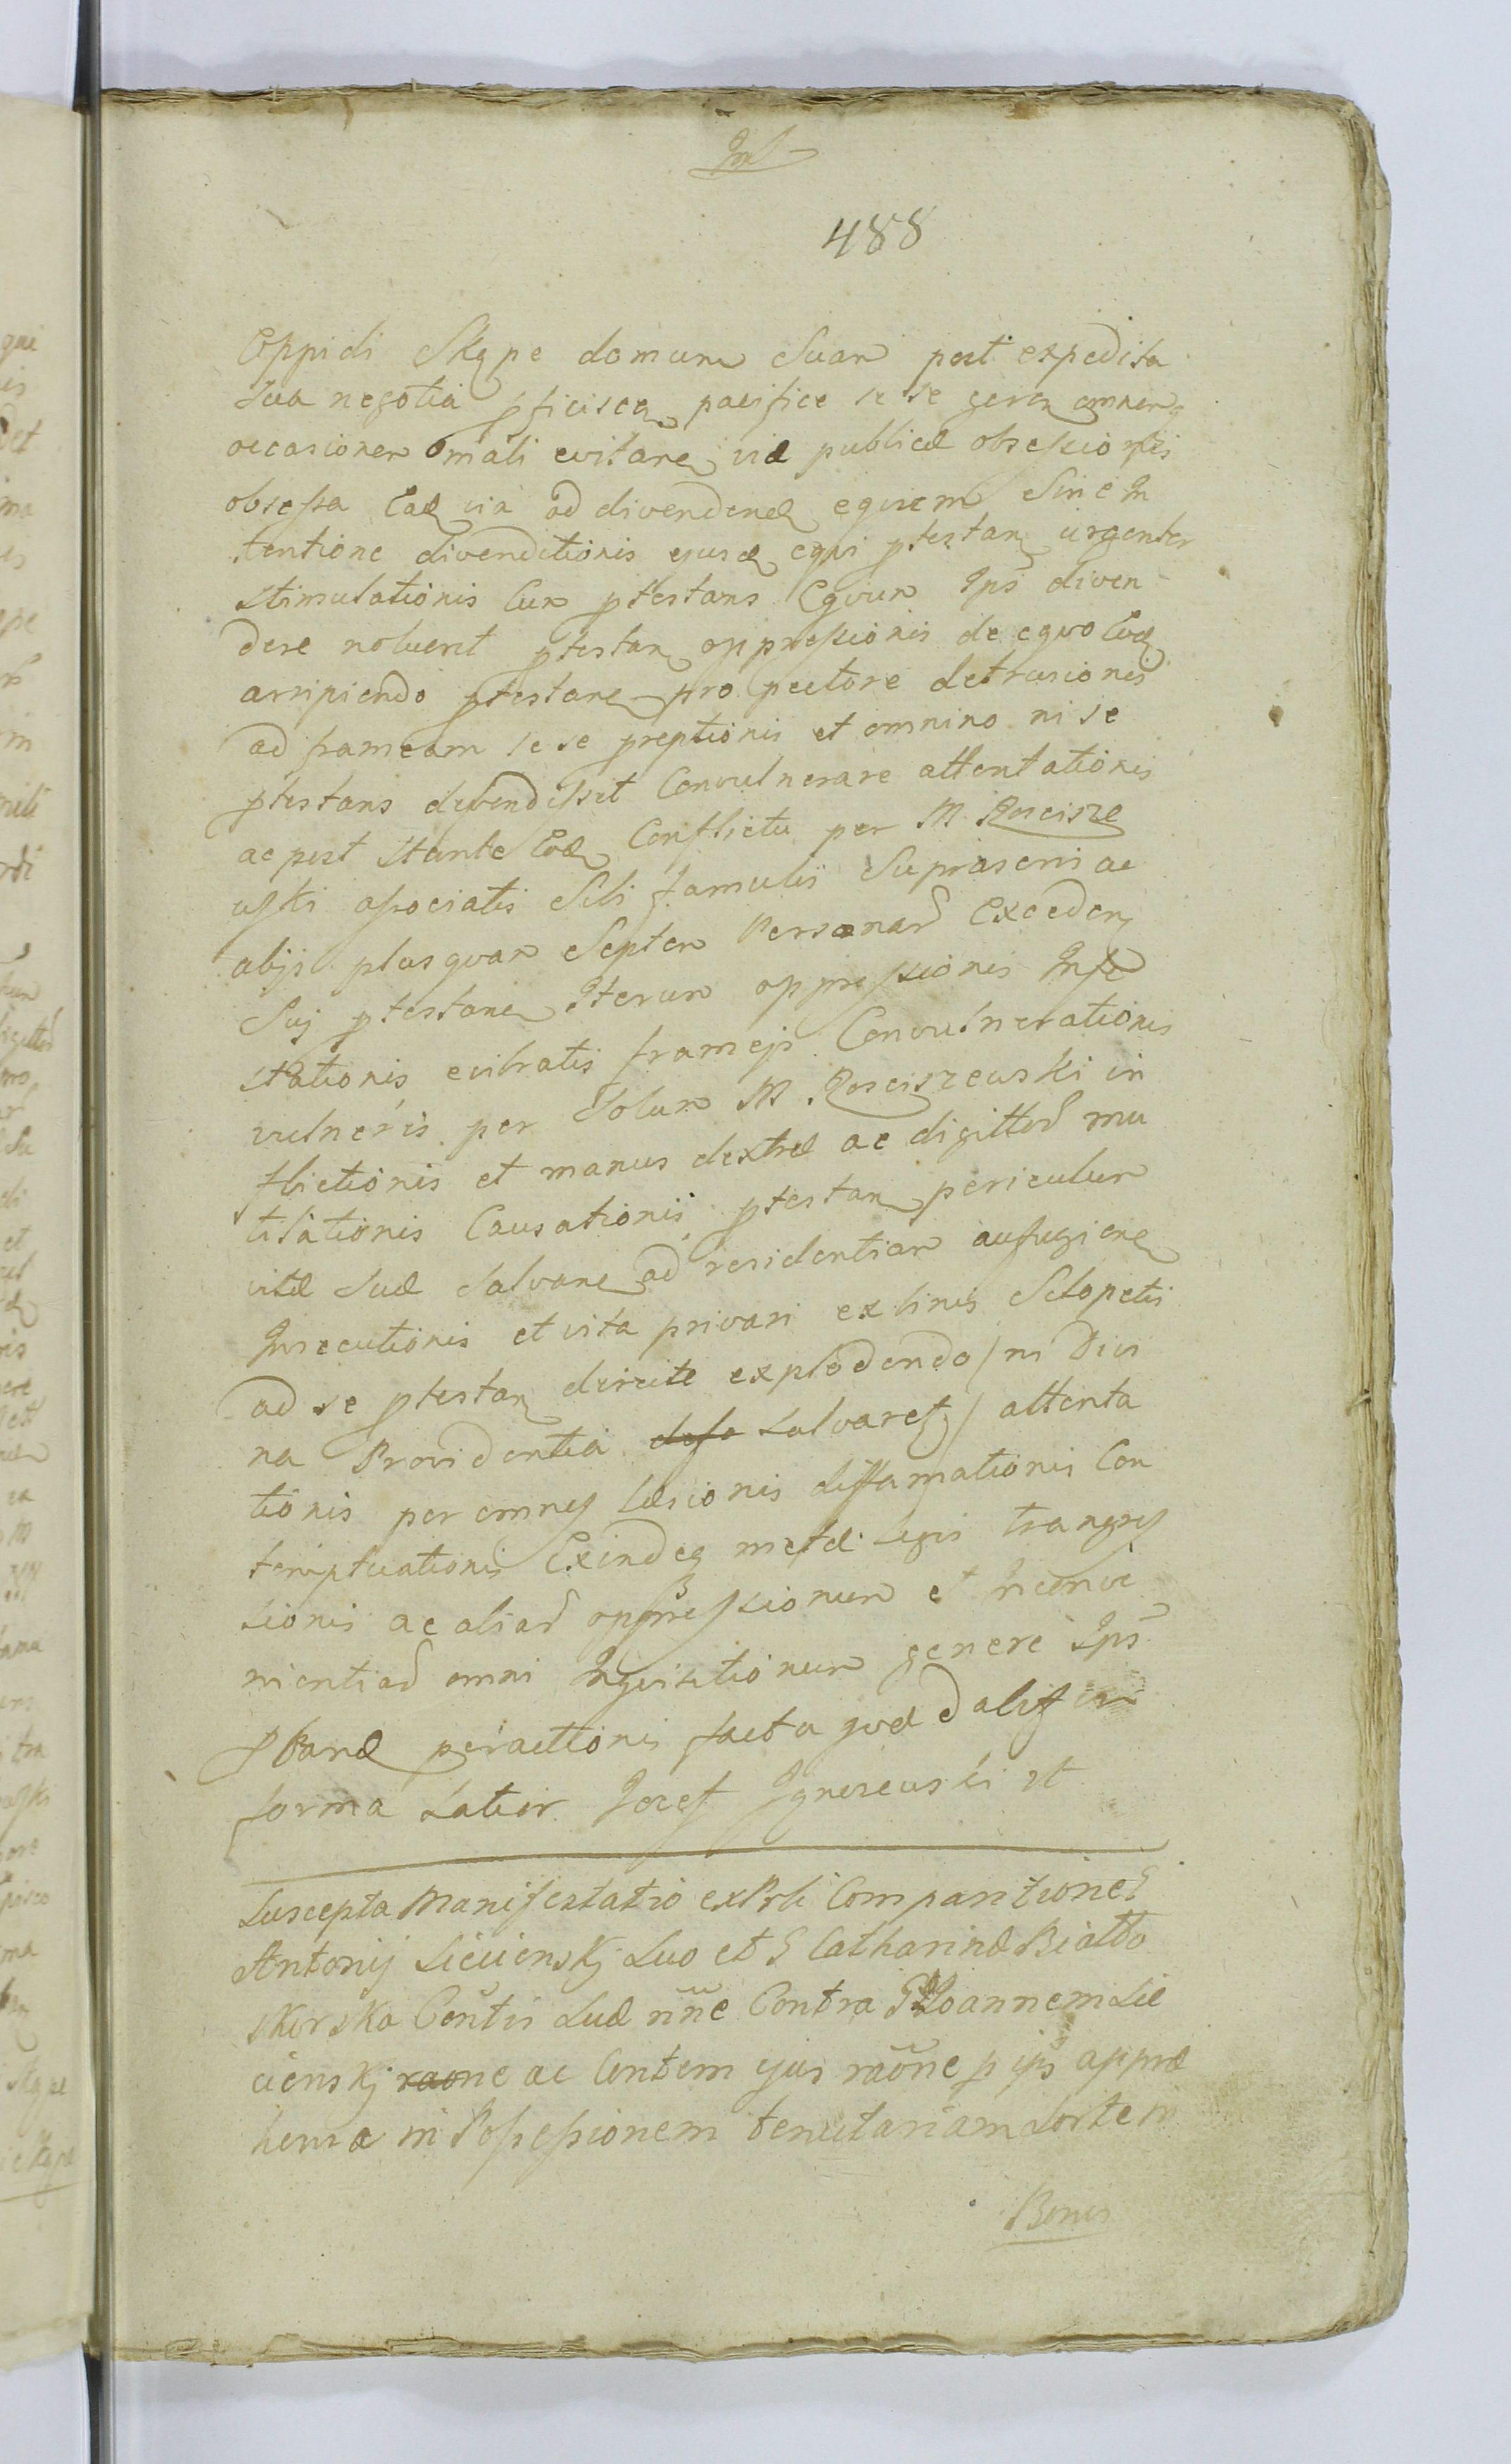 488
Oppidi Skępe domum Suam post expedita
sua negotia pficiscen pacifice se se geren omnem
occasionem mali evitare viæ publicæ obsessionis
obsessa Ead via ad divendend equum Sine In
tentione divenditionis ejusd equi ptestan urgenter
stimulationis Cum ptestans Equum Ips diven
dere noluerit ptestan oppressionis de equo Eod
arripiendo ptestane pro pectore detrusionis
ad frameam se se preptionis et omnino ni se
ptestans defendisset Convulnerare attentationis
ac post stante Eod Conflictu per M. Roscisze
uski associatis Sibi famulis Suprascrii ac
alijs plusquam Septem Personar Exceden
Suj ptestane Iterum oppressionis Infe
stationis evibratis framejs Convulnerationis
vulneris per Solum M. Rosciszewski in
flictionis et manus dextræ ac digittor mu
tilationis Causationis ptestan periculum
vitæ Suæ Salvane ad residentiam aufugiene
Insecutionis et vita privari ex binis Sclopetis
ad se ptestan directe explodendo / ni Divi
na Providentia salvaret / attenta
tionis per omnes læsionis diffamationis Con
temptuationis Exindeq metæ Legis transgres
sionis ac aliar oppressionum et Inconve
nientiar omni Inquisitionum genere Ips
pbanæ peractionis facta quæ dalsz in
forma Latior Jozef Ignszewski st
Suscepta Manifestatio ex Prli Comparitione G
Antonij Siciienskj Suo et G Catharinæ Biatto
skorska Contis Suæ nne Contra G Joannem Sie
cienskj raone ac Contem ejus raone p ips appræ
hensæ in Possessionem tenutariam Sortem
Bonis